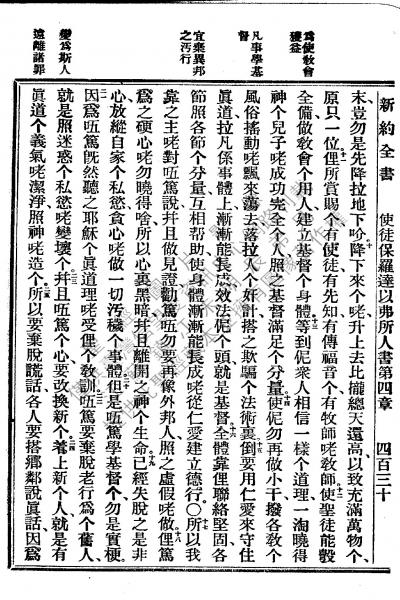 新約全書　使徒保羅達以弗所人書第四章　四百三十
爲使敎會穫益
凡事學基督
宜棄異邦之汚行
變爲斯人遠離諸罪
末豈勿是先降拉地下吤降下來个咾升上去比攏總天還高以致充滿萬物个
原只一位俚所賞賜个有使徒有先知有傳福音个有牧師咾敎師使聖徒能彀
全備做敎會个用人建立基督个身體等到伲衆人相信一樣个道理一淘曉得
神个兒子咾成功完全个人照之基督滿足个分量使伲勿再做小干撥各敎个
風俗搖動咾飄來蕩去落拉人个奸計搭之欺騙个法術裏倒要用仁愛來守住
眞道拉凡係事體上漸漸能長成效法伲个頭就是基督全體靠俚聯絡堅固各
節照各節个分量互相帮助使身體漸漸能長成咾從仁愛建立德行○所以我
靠之主咾對唔篤說幷且做見證勸唔篤勿要再像外邦人照之虛假咾做俚篤
爲之硬心咾勿曉得啥所以心裏黑暗幷且離開之神个生命已經失脫之是非
心放縱自家个私慾貪心咾做一切汚穢个事體但是唔篤學基督个勿是實梗
因爲唔篤旣然聽之耶穌个眞道理咾受俚个敎訓唔篤要棄脫老行爲个舊人
就是照迷惑个私慾咾變壞个幷且唔篤个心要改換新个著上新个人就是有
眞道个義氣咾潔淨照神咾造个所以要棄脫謊話各人要搭鄉鄰說眞話因爲